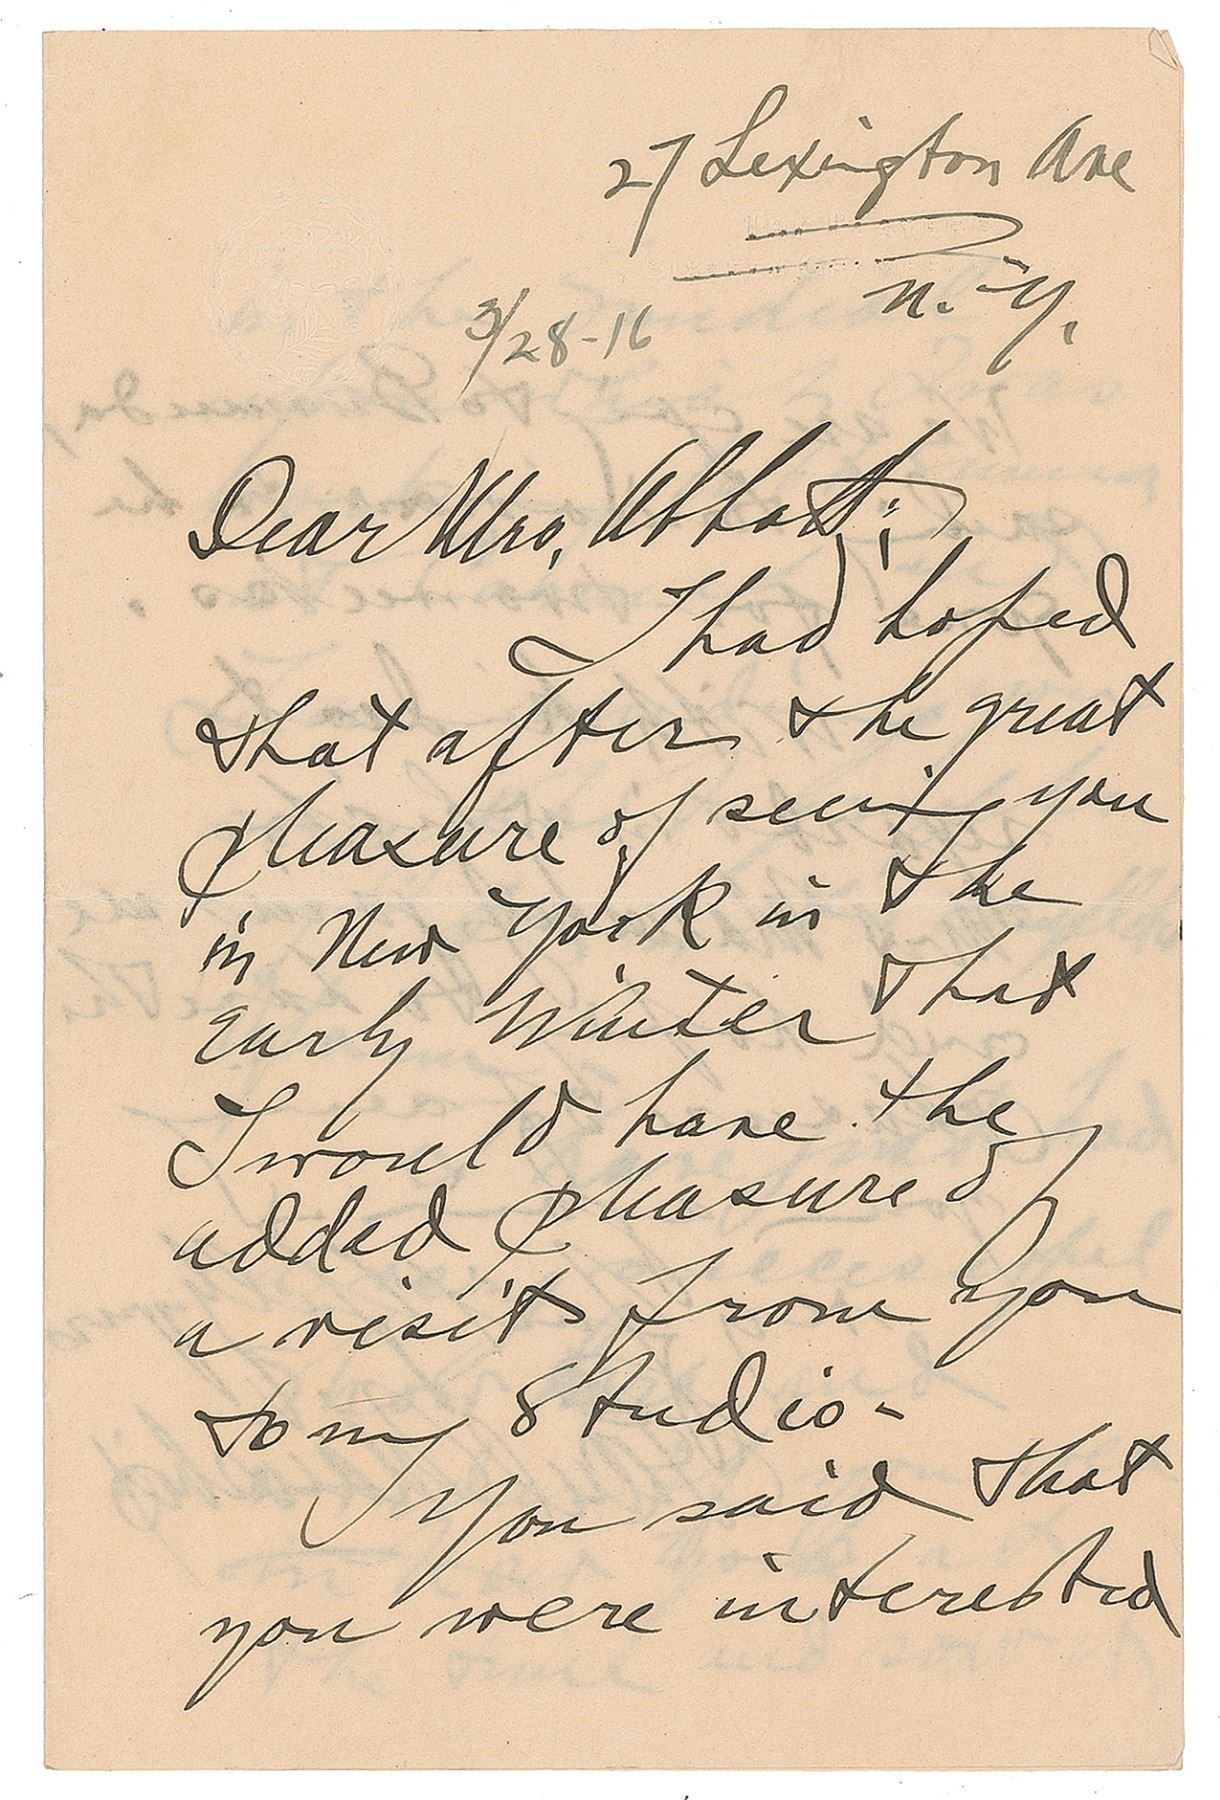 27 Lexington Ave
N.Y.
3/28-16
Dear Mrs. Abbott;
I had hoped
that after the great
pleasure of seeing you
in New York in the
early Winter that
I would have the
added pleasure of
a visit from you
to my Studio-
You said that
you were interested